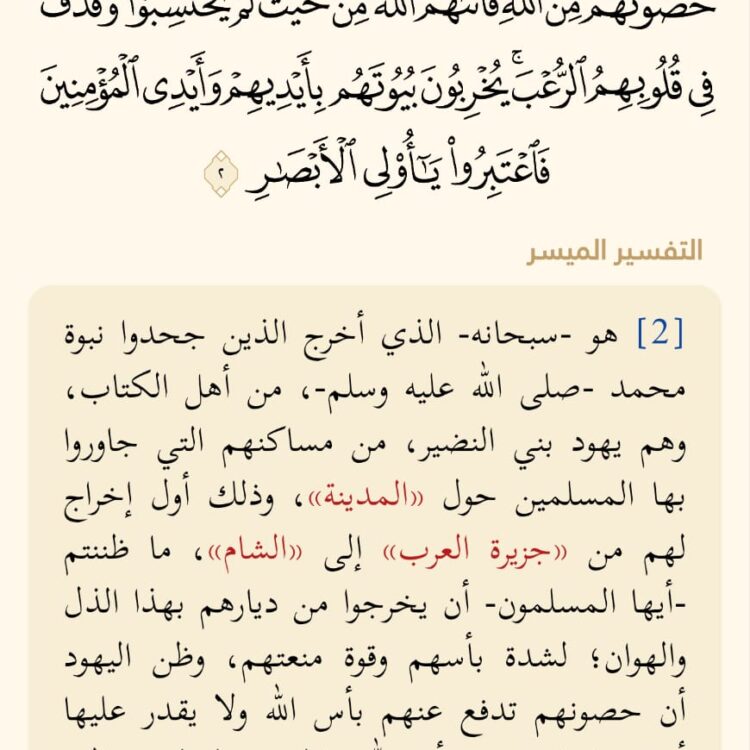 حُصُونُهُم مِّنَ ٱللَّهِ فَأَتَىٰهُمُ ٱللَّهُ مِنْ حَيْثُ لَمْ يَحْتَسِبُوا۟ وَقَذَفَ
فِى قُلُوبِهِمُ ٱلرُّعْبَ ۚ يُخْرِبُونَ بُيُوتَهُم بِأَيْدِيهِمْ وَأَيْدِى ٱلْمُؤْمِنِينَ
فَٱعْتَبِرُوا۟ يَـٰٓأُو۟لِى ٱلْأَبْصَـٰرِ ٢
التفسير الميسر
[2] هو -سبحانه- الذي أخرج الذين جحدوا نبوة
محمد -صلى الله عليه وسلم-، من أهل الكتاب،
وهم يهود بني النضير، من مساكنهم التي جاوروا
بها المسلمين حول «المدينة»، وذلك أول إخراج
لهم من «جزيرة العرب» إلى «الشام»، ما ظننتم
-أيها المسلمون- أن يخرجوا من ديارهم بهذا الذل
والهوان؛ لشدة بأسهم وقوة منعتهم، وظن اليهود
أن حصونهم تدفع عنهم بأس الله ولا يقدر عليها